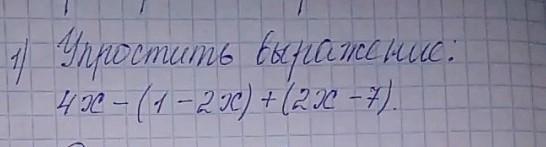 1) Упростить выражение:
4x – (1 – 2x) + (2x – 7).